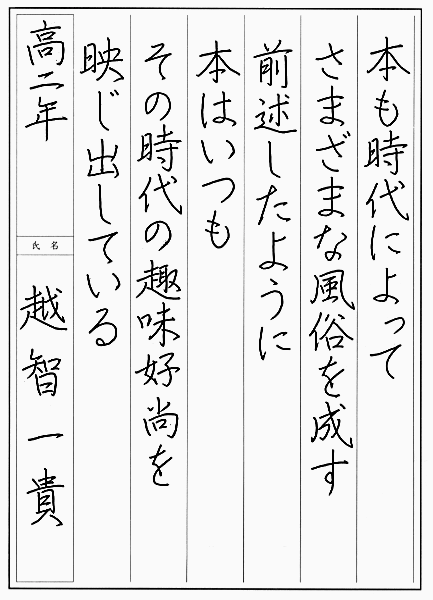 本も時代によって
さまざまな風俗を成す
前述したように
本はいつも
その時代の趣味好尚を
映じ出している
高二年
氏名
越智一貴